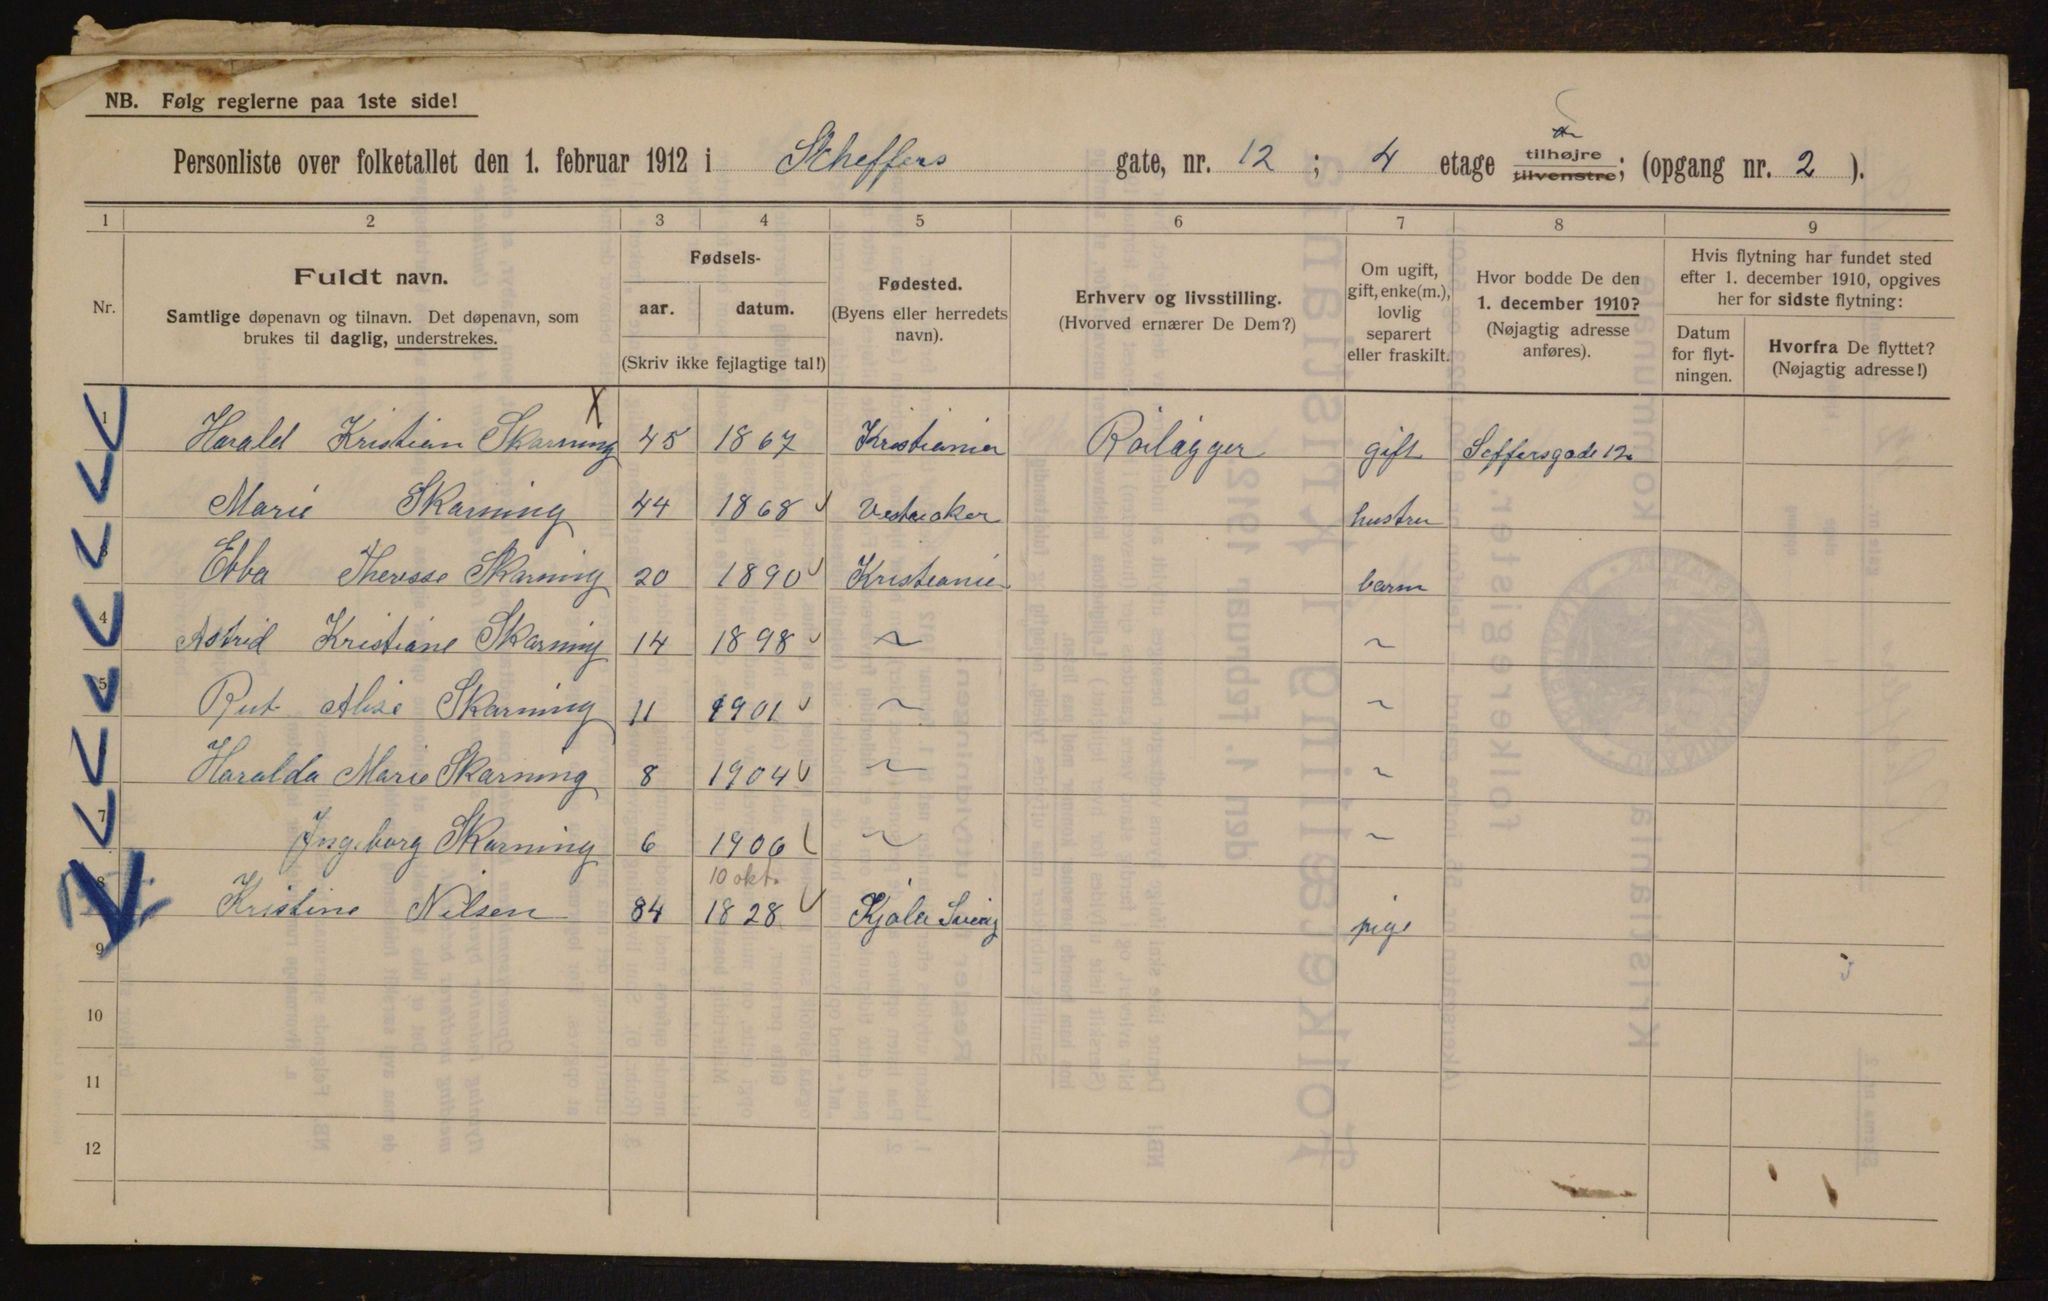 NB. Følg reglerne paa 1ste side!
Personliste over folketallet den 1. februar 1912 i Scheffers gate, nr. 12 ; 4 etage tilhøjre tilvenstre; (opgang nr. 2 ).
1 2 3 4 5 6 7 8 9
Nr.
Fuldt navn.
Samtlige døpenavn og tilnavn. Det døpenavn, som
brukes til daglig, understrekes.
Fødsels-
aar. datum.
(Skriv ikke fejlagtige tal!)
Fødested.
(Byens eller herredets
navn).
Erhverv og livsstilling.
(Hvorved ernærer De Dem?)
Om ugift,
gift, enke(m.),
lovlig
separert
eller fraskilt.
Hvor bodde De den
1. december 1910?
(Nøjagtig adresse
anføres).
Hvis flytning har fundet sted
efter 1. december 1910, opgives
her for sidste flytning:
Datum
for flyt-
ningen.
Hvorfra De flyttet?
(Nøjagtig adresse!)
1 Harald Kristian Skarning 45 1867 Kristiania Roilägger gift Seffersgade 12
Marie Skarning 44 1868 Vestre Aker hustru
3 Ebba Theresse Skarning 20 1890 Kristiania barn
4 Astrid Kristiane Skarning 14 1898 ~ ~
5 Rut Alise Skarning 11 1901 ~ ~
Haralda Marie Skarning 8 1904 ~ ~
7 Ingeborg Skarning 6 1906 ~ ~
10 okt.
8 Kristine Nilsen 84 1828 pige
9
10
11
12